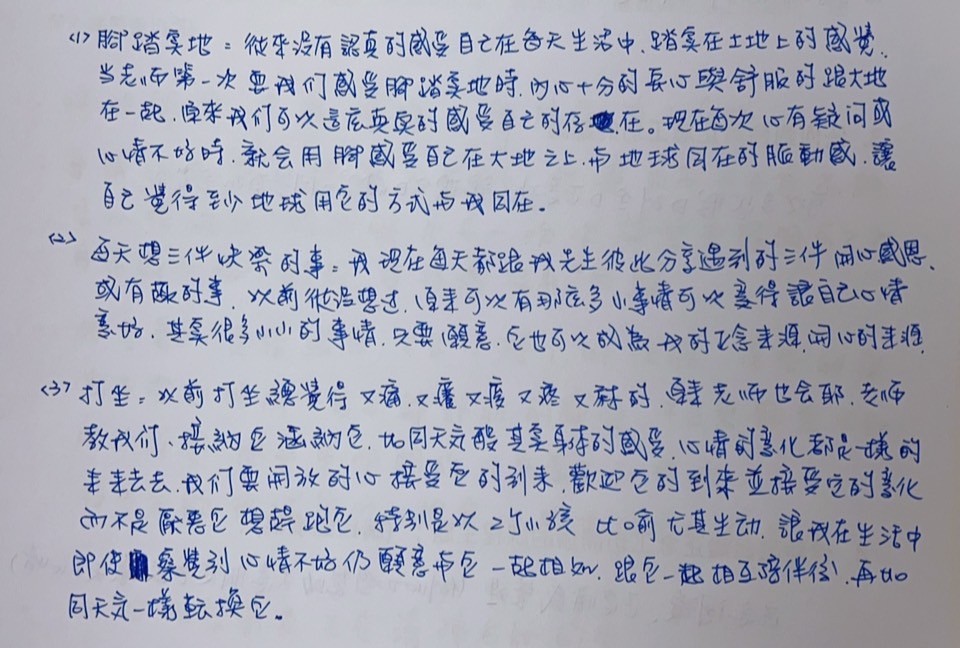 <1> 腳踏实地:從來沒有認真的感受自己在每天生活中,踏实在土地上的感覺.
当老师第一次要我们感受腳踏实地時,內心十分的長心與舒服的跟大地
在一起,原來我们可以這庅真实的感受自己的存在。現在每次心有疑问或
心情不好時.就会用腳感受自己在大地之上,与地球同在的脈動感,讓
自己覺得至少地球用它的方式与我同在.
<2> 每天想三件快樂的事:我現在每天都跟我先生彼此分享遇到的三件開心感恩.
或有趣的事.以前從沒想过,原來可以有那庅多小事情可以变得讓自己心情
变好.其实很多小小的事情,只要願意.它也可以成為我的正念來源,開心的來源.
<3> 打坐:以前打坐總覺得又痛.又癢又痠又疼又麻的.原來老师也会耶.老师
教我们.接納它涵納它.如同天氣般其实身体的感受.心情的变化都是一樣的
來來去去.我们要開放的心接受它的到來.歡迎它的到來並接受它的变化
而不是厭惡它想趕跑它.特別是以2个小孩比喻尤其生动.讓我在生活中
即使察覺到心情不好仍願意与它一起相処.跟它一起相互陪伴後.再如
同天氣一樣転換它。